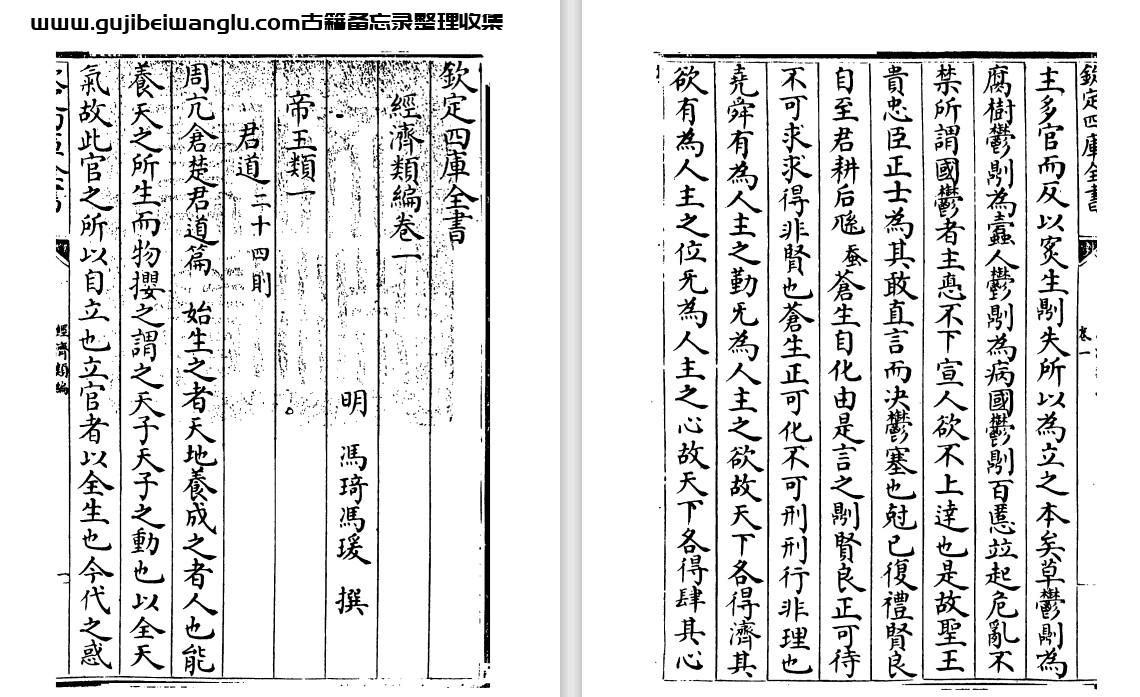 www.gujibeiwanglu.com古籍备忘录整理收集
欽定四庫全書
經濟類編卷一
明 馮琦馮瑗 撰
帝王類一
君道二十四則
周亢倉楚君道篇 始生之者天地養成之者人也能
養天之所生而物攖之謂之天子天子之動也以全天
氣故此官之所以自立也立官者以全生也今代之惑
經濟類編
一
欽定四庫全書
卷一
主多官而反以害生則失所以為立之本矣草鬱則為
腐樹鬱則為蠹人鬱則為病國鬱則百慝竝起危亂不
禁所謂國鬱者主悳不下宣人欲不上達也是故聖王
貴忠臣正士為其敢直言而決鬱塞也尅已復禮賢良
自至君耕后蚕蒼生自化由是言之則賢良正可待
不可求求得非賢也蒼生正可化不可刑刑行非理也
堯舜有為人主之勤无為人主之欲故天下各得濟其
欲有為人主之位无為人主之心故天下各得肆其心